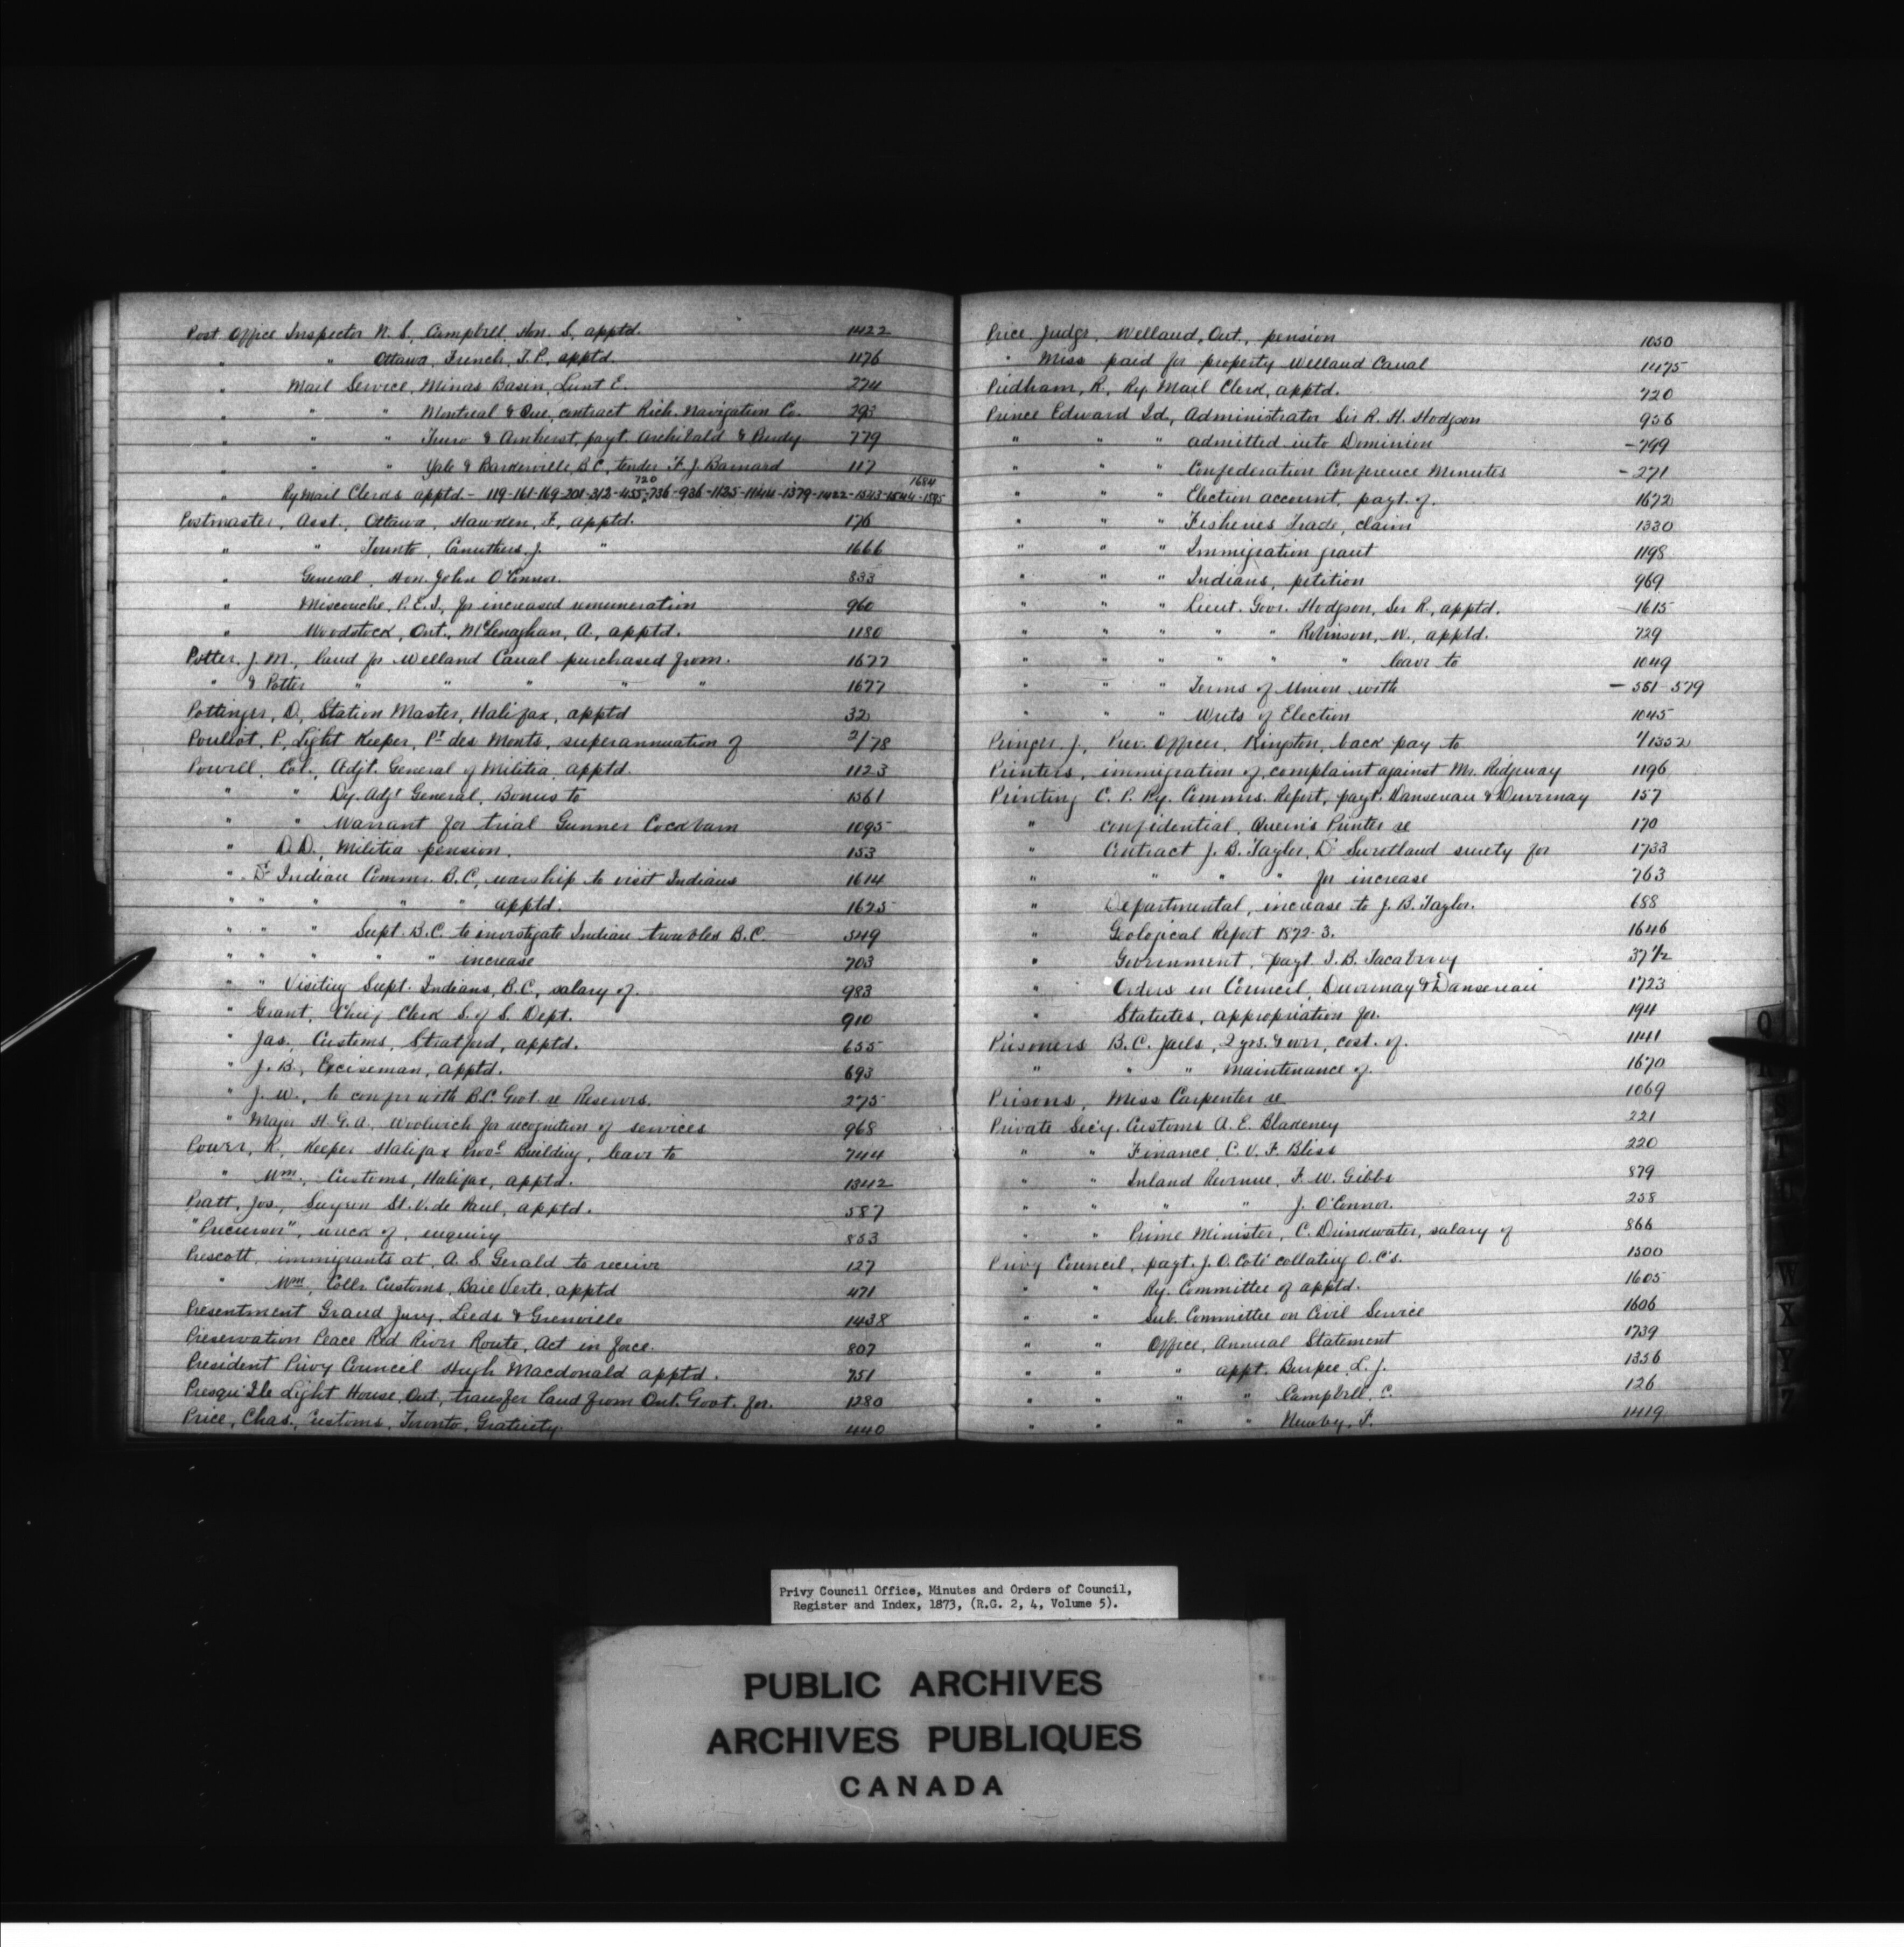 Post Office Inspector N. S., Campbell, Hon. S, apptd. 1422
" " Ottawa, French, T.P., apptd. 1176
" Mail Service, Minas Basin, Lunt E. 274
" " " Montreal & Que, contract Rich. Navigation Co. 293
" " " Truro & Amherst, payt. Archibald & Purdy 779
" " " Yale & Barkerville, B.C., tender F. J. Barnard 117
720 1684
" Ry Mail Clerks apptd - 119-161-169-201-312-455-736-936-1125-1144-1379-1422-1543-1544-1595
Postmaster, Asst., Ottawa, Hawken, F., apptd. 176
" " Toronto, Carruthers, J. " 1666
" General, Hon. John O'Connor. 833
" Miscouche, P.E.I., for increased remuneration 960
" Woodstock, Ont., McClenaghan, A., apptd. 1180
Potter, J. M., land for Welland Canal purchased from. 1677
" & Potter " " " " " 1677
Pottinger, D, Station Master, Halifax, apptd 32
Pouliot, P, Light Keeper, Pt des Monts, superannuation of 2/78
Powell, Col., Adjt. General of Militia, apptd. 1123
" " Dy. Adjt General, Bonus to 1561
" " Warrant for trial Gunner Cockburn 1095
" D.D., Militia pension. 153
" Dr Indian Commr. B.C., warship to visit Indians 1614
" " " " " apptd. 1625
" " " Supt. B.C. to investigate Indian troubles B.C. 549
" " " " " increase 703
" " Visiting Supt. Indians, B.C., salary of. 983
" Grant, Chief Clerk S. of S. Dept. 910
" Jas., Customs, Stratford, apptd. 655
" J. B., Exciseman, apptd. 693
" J. W., to confer with B.C. Govt. re Reserves. 275
" Major H. G. A., Woolwich for recognition of services 968
Power, R, Keeper Halifax Provl Building, leave to 744
" Wm., Customs, Halifax, apptd. 1342
Pratt, Jos., Surgeon St. V. de Paul, apptd. 587
"Precursor", wreck of, enquiry 853
Prescott, immigrants at, A. S. Gerald to receive 127
" Wm, Collr Customs, Baie Verte, apptd 471
Presentment Grand Jury, Leeds & Grenville 1438
Preservation Peace Red River Route, Act in force. 807
President Privy Council Hugh Macdonald apptd. 751
Presqu'Ile Light House, Ont., transfer land from Ont. Govt. for. 1280
Price, Chas., Customs, Toronto, Gratuity. 440
Price Judge, Welland, Ont., pension 1050
" Miss paid for property Welland Canal 1475
Pridham, R, Ry. Mail Clerk, apptd. 720
Prince Edward Id, Administrator Sir R. H. Hodgson 956
" " " admitted into Dominion -799
" " " Confederation Conference Minutes -271
" " " Election account, payt. of. 1672
" " " Fisheries Trade, claim 1330
" " " Immigration grant 1198
" " " Indians, petition 969
" " " Lieut. Govr. Hodgson, Sir R., apptd. 1615
" " " " " Robinson, W., apptd. 729
" " " " " " leave to 1049
" " " Terms of Union with - 551-579
" " " Writs of Election 1045
Pringer, J., Prev. Officer, Kingston, back pay to 1/1352
Printers, immigration of, complaint against Mr. Ridgway 1196
Printing C. P. Ry. Commrs. Report, payt. Dansereau & Duvernay 157
" confidential, Queen's Printer re 170
" Contract J. B. Taylor, Dr Sweetland surety for 1733
" " " " for increase 763
" Departmental, increase to J. B. Taylor. 688
" Geological Report 1872-3. 1646
" Government, payt. I. B. Tacaberry 37 1/2
" Orders in Council, Duvernay & Dansereau 1723
" Statutes, appropriation for. 194
Prisoners B.C. Jails, 2 yrs. & over, cost. of. 1141
" " " Maintenance of. 1670
Prisons, Miss Carpenter re 1069
Private Sec'y. Customs A. E. Blakeney 221
" " Finance, C. V. F. Bliss 220
" " Inland Revenue, F. W. Gibbs 879
" " " " J. O'Connor. 258
" " Prime Minister, C. Drinkwater, salary of 866
Privy Council, payt. J. O. Coté collating O.C's. 1500
" " Ry. Committee of apptd. 1605
" " Sub. Committee on Civil Service 1606
" " Office, Annual Statement 1739
" " " appt. Burpee, L. J. 1356
" " " " Campbell, C. 126
" " " " Newby, F. 1419
Q
T
W
X
Y
Z
Privy Council Office, Minutes and Orders of Council,
Register and Index, 1873, (R.G. 2, 4, Volume 5).
PUBLIC ARCHIVES
ARCHIVES PUBLIQUES
CANADA